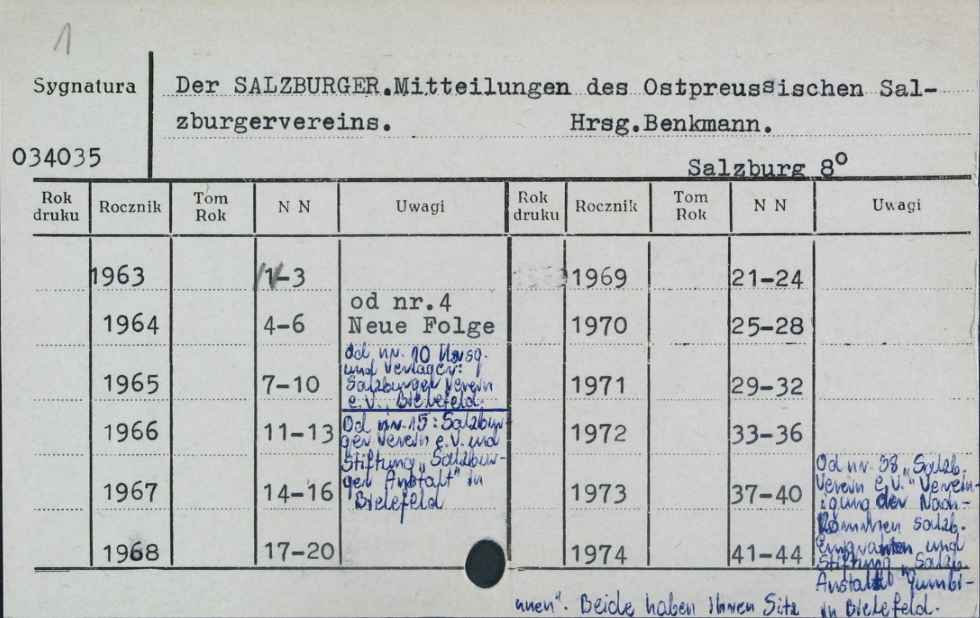 1
Sygnatura
Der SALZBURGER.Mitteilungen des Ostpreussischen Sal-
zburgervereins. Hrsg.Benkmann.
034035
Salzburg 8°
Rok druku Rocznik Tom Rok N N Uwagi Rok druku Rocznik Tom Rok N N Uwagi
1963 1-3 1969 21-24
od nr.4
1964 4-6 Neue Folge 1970 25-28
Od nr. 10 Hrsg.
und Verlager:
1965 7-10 Salzburger Verein 1971 29-32
e.V., Bielefeld.
Od nr. 15: Salzbur-
1966 11-13 ger Verein e.V. und 1972 33-36
Stiftung „Salzbur-
ger Anstalt" in
1967 14-16 Bielefeld 1973 37-40
1968 17-20 1974 41-44
Od nr. 38 „Salzb.
Verein e.V." Verein-
igung der Nach-
kommen salzb.
Emigranten und
Stiftung „Salzb.
Anstalt Gumbi-
nnen". Beide haben Ihren Sitz in Bielefeld.